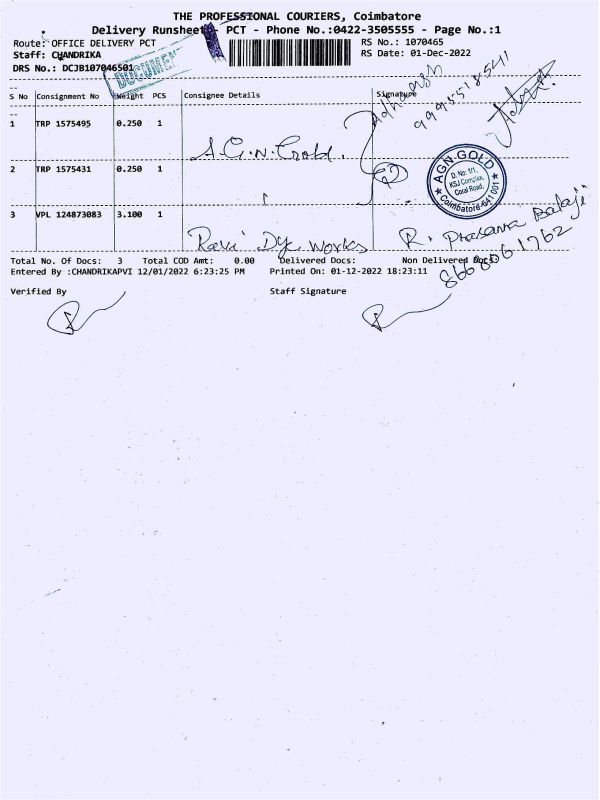 THE PROFESSIONAL COURIERS, Coimbatore
Delivery Runsheet - PCT - Phone No.:0422-3505555 - Page No.:1
Route: OFFICE DELIVERY PCT RS No.: 1070465
Staff: CHANDRIKA RS Date: 01-Dec-2022
DRS No.: DCJB107046501
S No Consignment No Weight PCS Consignee Details Signature
1 TRP 1575495 0.250 1 A.G.N. Gold.
2 TRP 1575431 0.250 1
AGN-GOLD
D. No: 1/1,
KSJ Complex,
Coral Road,
Coimbatore-641 001
3 VPL 124873083 3.100 1 Ravi Dye Works R. Prasanna Balaji
8668061762
Total No. Of Docs: 3 Total COD Amt: 0.00 Delivered Docs: Non Delivered Docs:
Entered By :CHANDRIKAPVI 12/01/2022 6:23:25 PM Printed On: 01-12-2022 18:23:11
Verified By Staff Signature